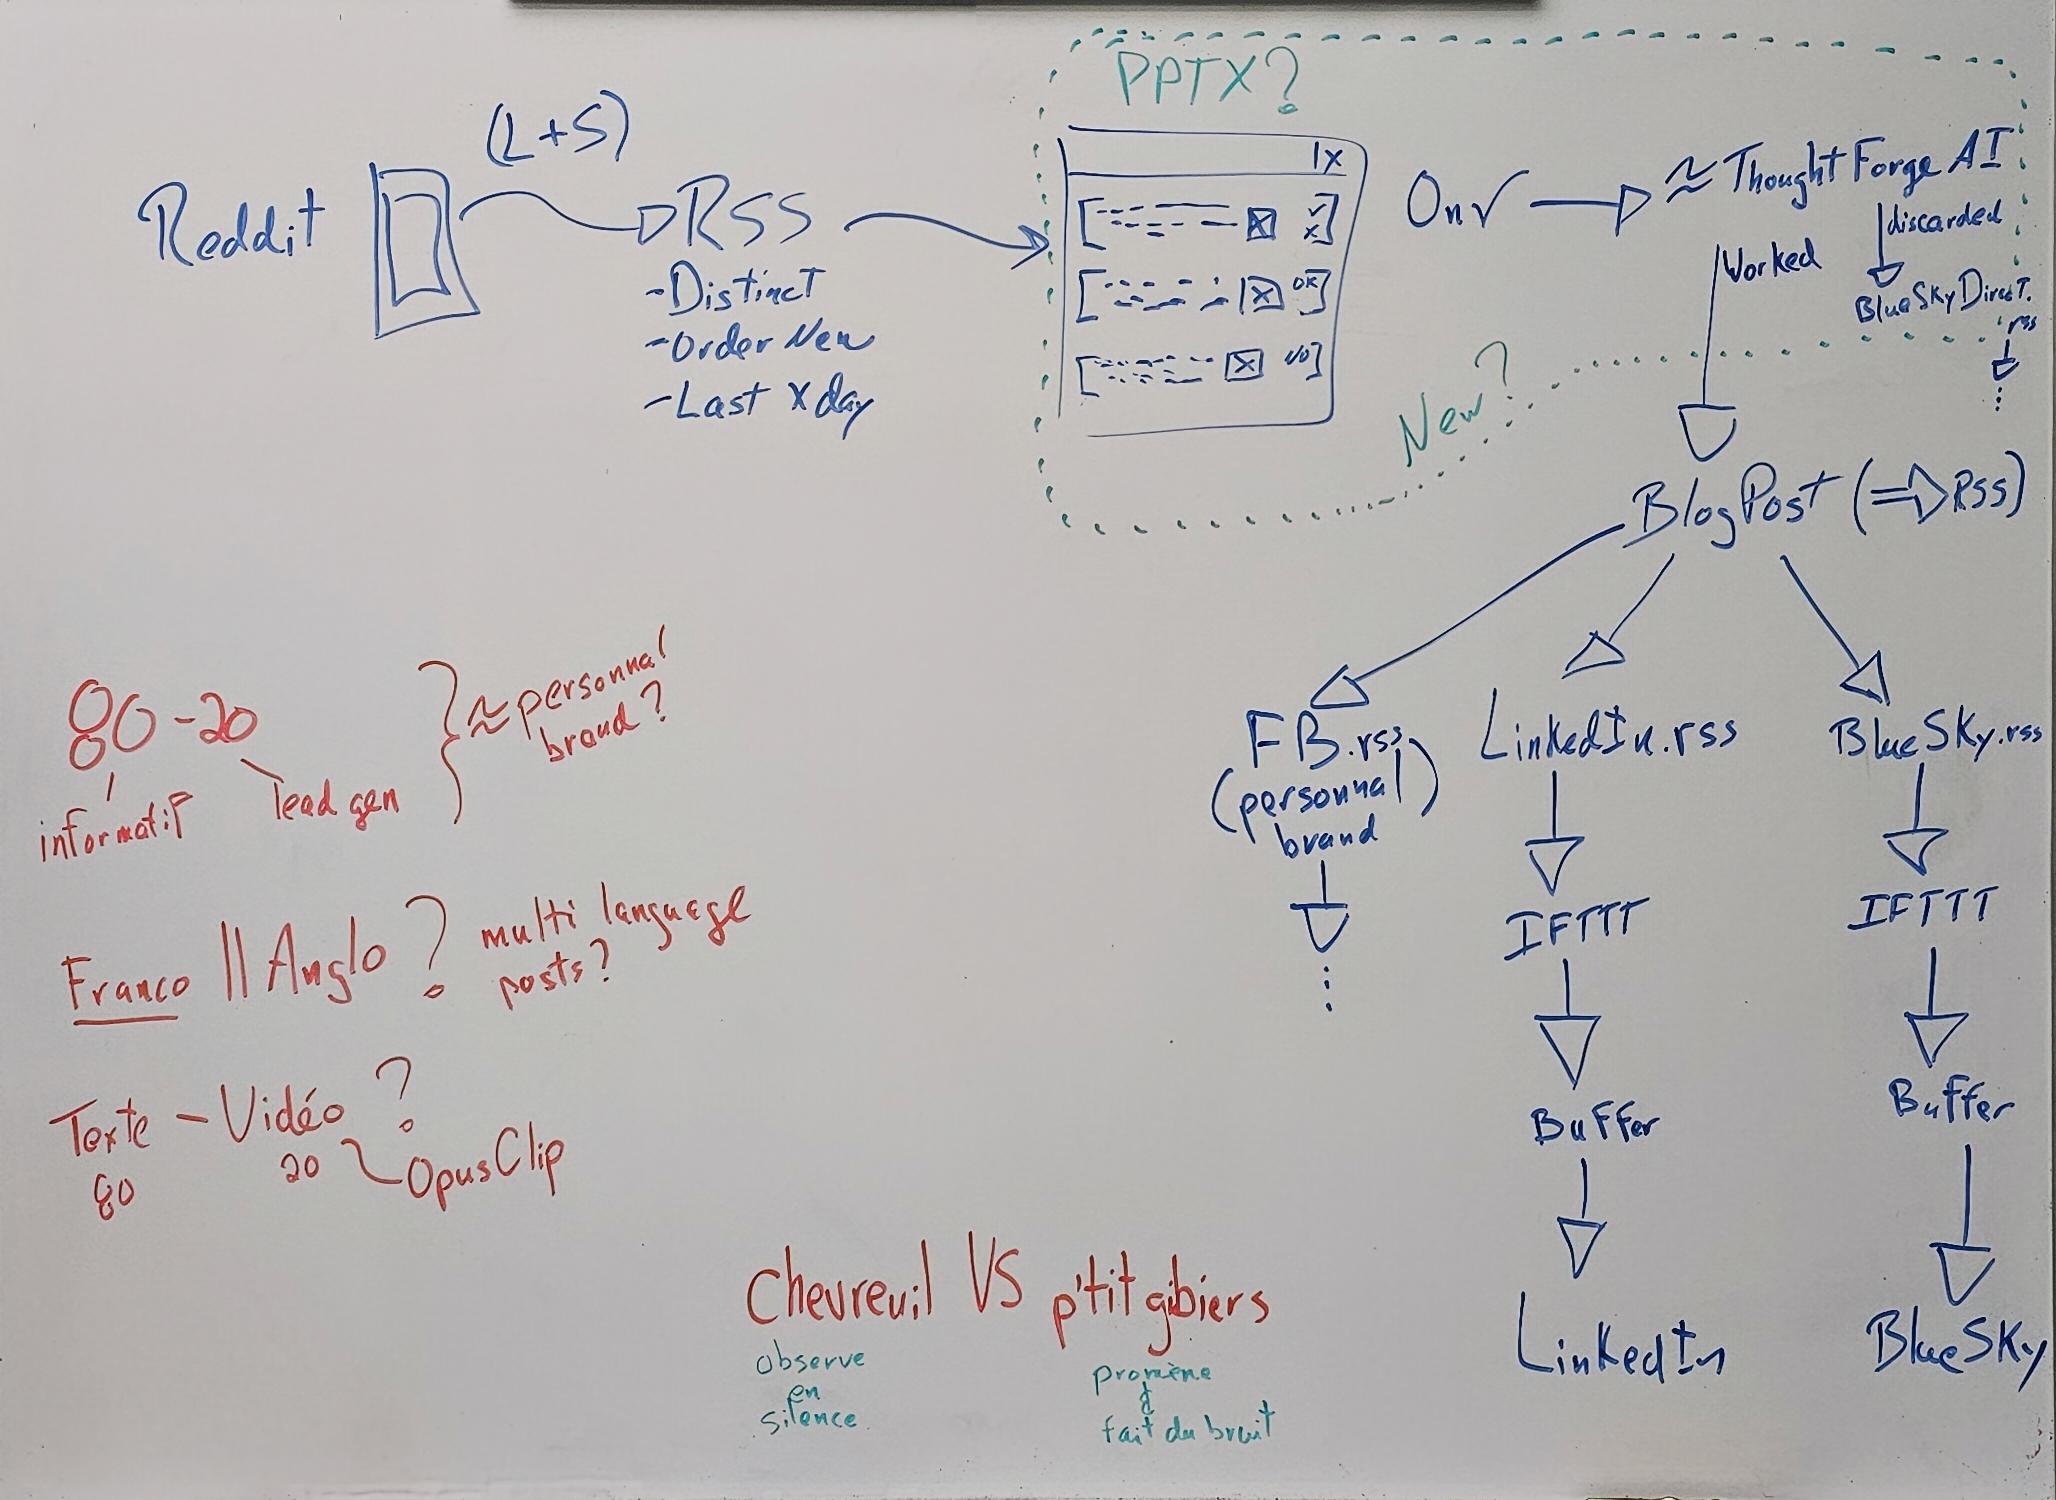 PPTX?
(L+S)
Reddit
RSS
- Distinct
- Order New
- Last X day
1x
OK
NO
On √
≈ ThoughtForgeAI
Worked
discarded
BlueSkyDirect.
rss
New?
BlogPost (⇒RSS)
FB.rss
(personnal)
brand
LinkedIn.rss
IFTTT
Buffer
LinkedIn
BlueSky.rss
IFTTT
Buffer
BlueSky
80-20
informatif
lead gen
≈ personnal
brand?
Franco || Anglo ?
multi language
posts?
Texte - Vidéo ?
80
20
OpusClip
Chevreuil VS p'tit gibiers
observe
en
silence
promène
&
fait du bruit